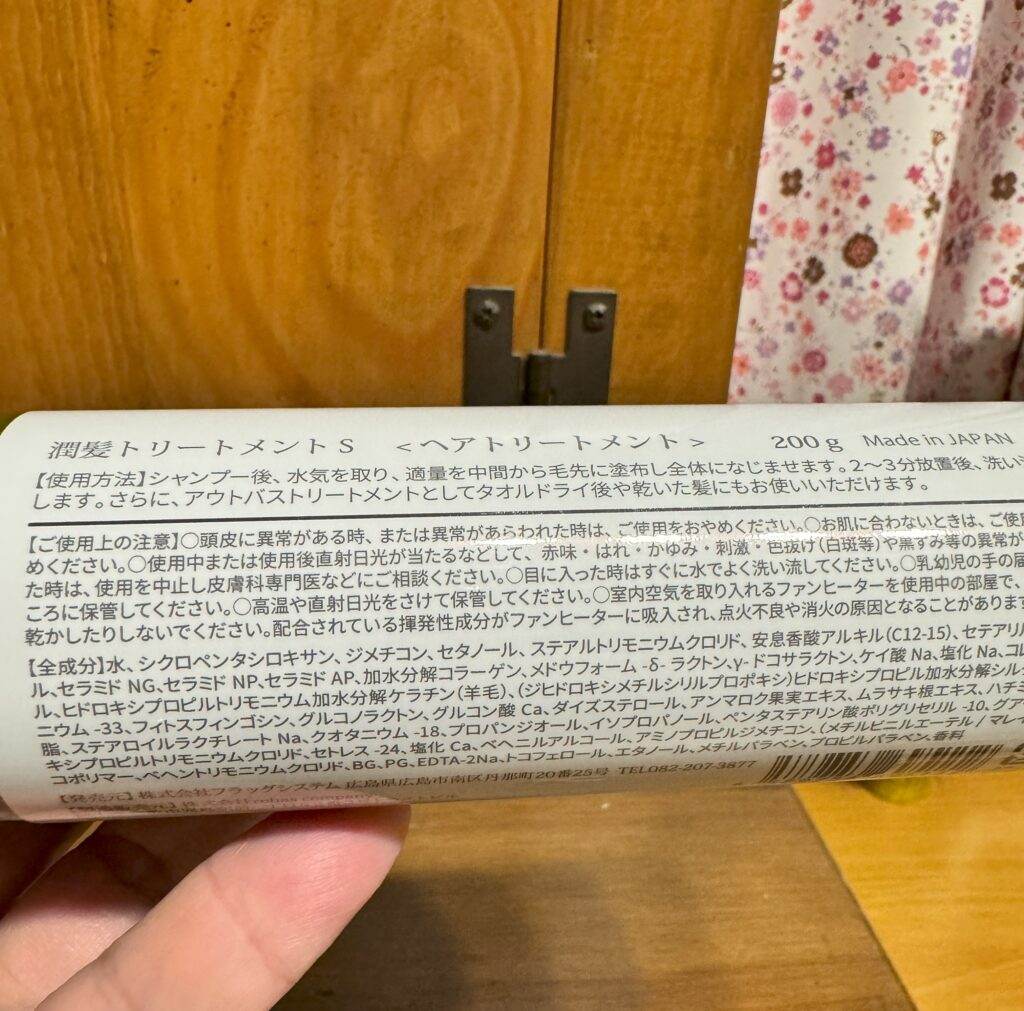 潤髪トリートメントS <ヘアトリートメント> 200g Made in JAPAN
【使用方法】シャンプー後、水気を取り、適量を中間から毛先に塗布し全体になじませます。2〜3分放置後、洗い
します。さらに、アウトバストリートメントとしてタオルドライ後や乾いた髪にもお使いいただけます。
【ご使用上の注意】○頭皮に異常がある時、または異常があらわれた時は、ご使用をおやめください。○お肌に合わないときは、ご使
めください。○使用中または使用後直射日光が当たるなどして、赤味・はれ・かゆみ・刺激・色抜け(白斑等)や黒ずみ等の異常が
た時は、使用を中止し皮膚科専門医などにご相談ください。○目に入った時はすぐに水でよく洗い流してください。○乳幼児の手の届
ころに保管してください。○高温や直射日光をさけて保管してください。○室内空気を取り入れるファンヒーターを使用中の部屋で、
乾かしたりしないでください。配合されている揮発性成分がファンヒーターに吸入され、点火不良や消火の原因となることがあります
【全成分】水、シクロペンタシロキサン、ジメチコン、セタノール、ステアルトリモニウムクロリド、安息香酸アルキル(C12-15)、セテアリル
ル、セラミド NG、セラミド NP、セラミド AP、加水分解コラーゲン、メドウフォーム -δ- ラクトン、γ- ドコサラクトン、ケイ酸 Na、塩化 Na、コレ
ル、ヒドロキシプロピルトリモニウム加水分解ケラチン(羊毛)、(ジヒドロキシメチルシリルプロポキシ)ヒドロキシプロピル加水分解シル
ニウム -33、フィトスフィンゴシン、グルコノラクトン、グルコン酸 Ca、ダイズステロール、アンマロク果実エキス、ムラサキ根エキス、ハチミ
脂、ステアロイルラクチレート Na、クオタニウム -18、プロパンジオール、イソプロパノール、ペンタステアリン酸ポリグリセリル -10、グア
キシプロピルトリモニウムクロリド、セトレス -24、塩化 Ca、ベヘニルアルコール、アミノプロピルジメチコン、(メチルビニルエーテル / マレイ
コポリマー、ベヘントリモニウムクロリド、BG、PG、EDTA-2Na、トコフェロール、エタノール、メチルパラベン、プロピルパラベン、香料
【発売元】株式会社フラッグシステム 広島県広島市南区丹那町20番25号 TEL082-207-3877